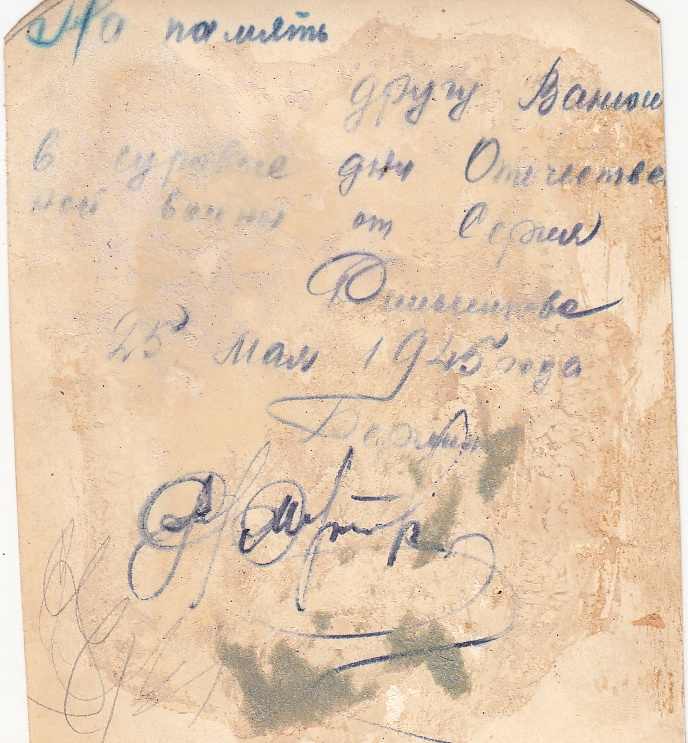 На память
другу Ванюш
в суровые дни Отечестве
ной войны от Сергея
25 мая 1945 года
Берлин